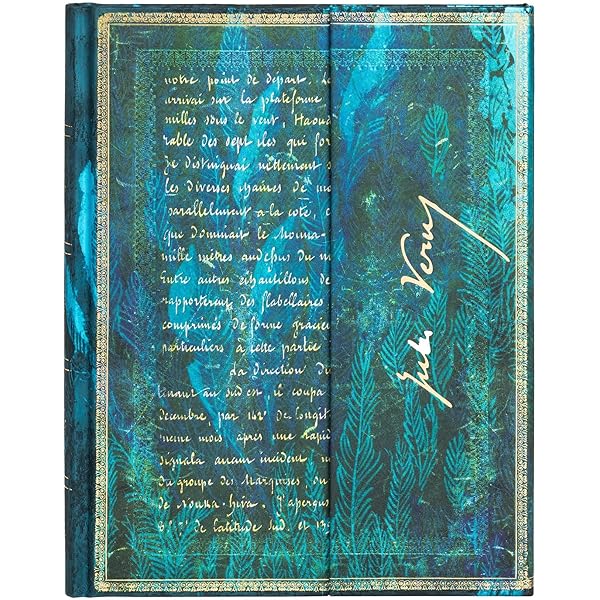 notre point de départ. Le
arrivai sur la plateforme
milles sous le vent, Haoua
rable des sept iles qui for
Je distinguai nettement s
les diverses chaînes de mo
parallèlement à la côte, e
que dominait le Mouna-
mille mètres audessus du n
Entre autres échantillons de
rapportèrent des flabellaires
comprimés de forme gracieu
particuliers à cette partie
la direction du
tenant au sud est, il coupa
décembre, par 142° de longit
meme mois après une rapid
signala aucun incident, n
du groupe des Marquises, ou
de Nouka-hiva. J'aperçus
8° 9' de latitude sud, et 13
Jules Verne